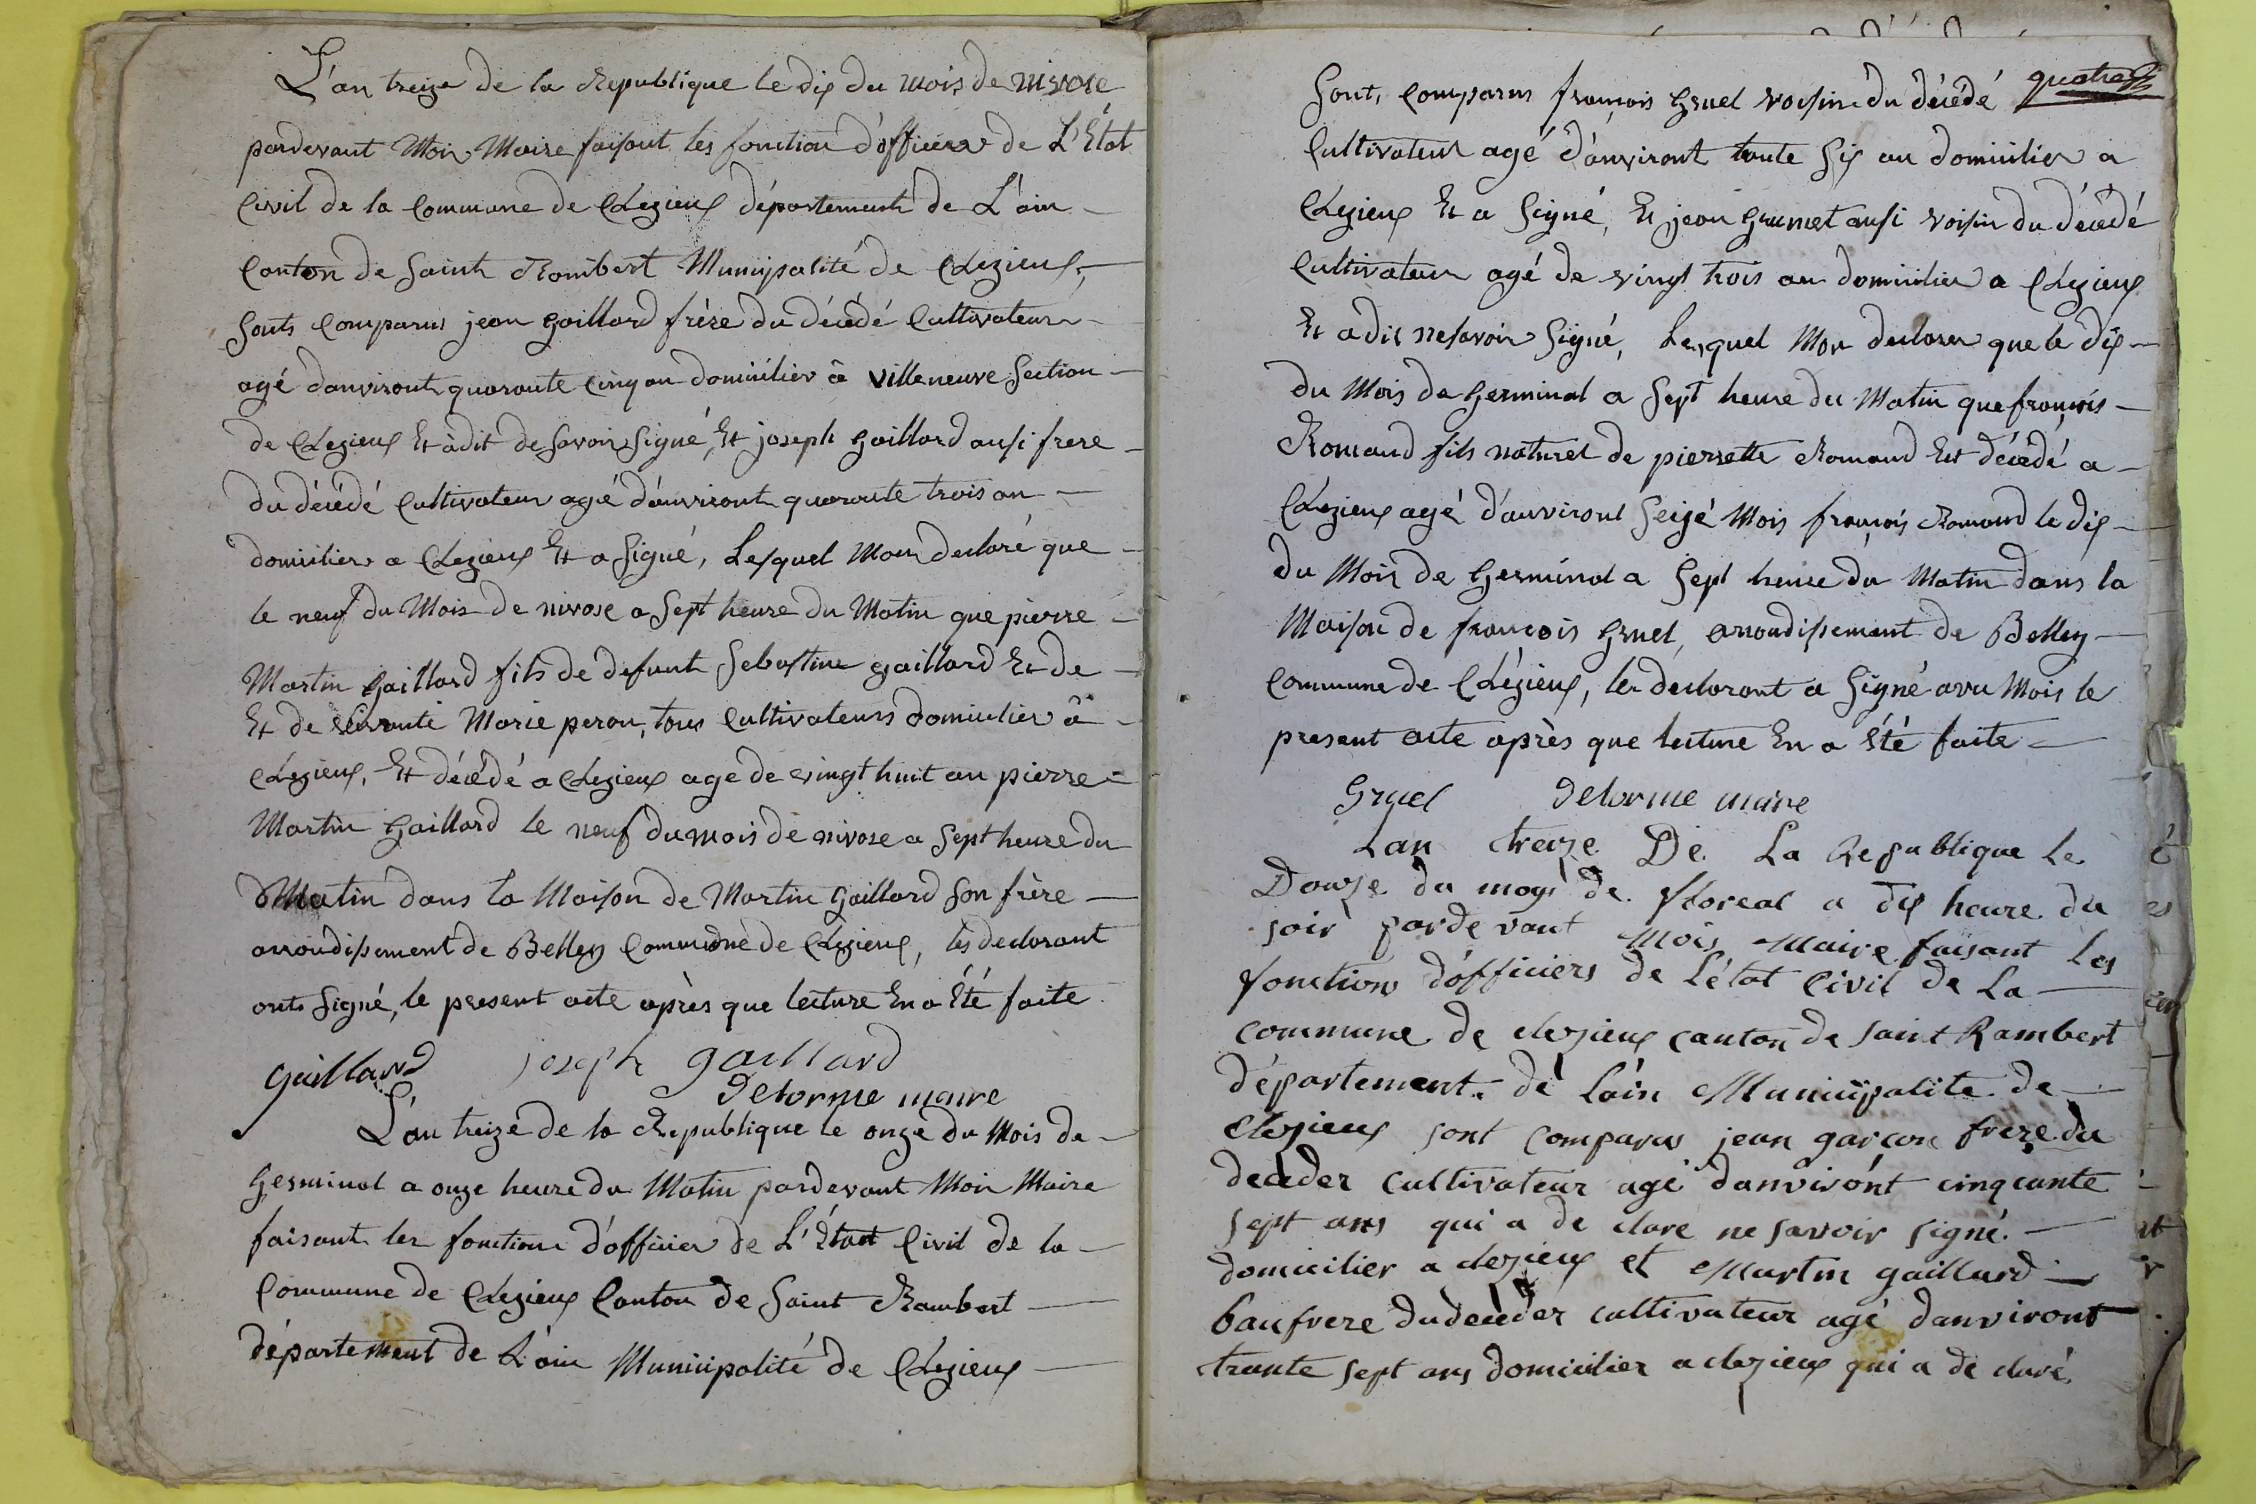 L'an treize de la Republique le dix du mois de nivose
pardevant Moi Maire faisant les fonction d'officier de L'Etat
Civil de la Commune de Clezieux département de L'ain
Canton de Saint Rambert Municipalité de Clezieux,
Sonts Comparus jean gaillard frère du décédé Cultivateur
agé danviront quarante cinq an domicilier à Villeneuve Section
de Clezieux Et à dit de savoir signé, Et joseph gaillard ausi frere
du décédé Cultivateur agé d'anviront quarante trois an
domicilier a Clezieux Et a signé, Lesquel Mon declaré que
le neuf du Mois de nivose a Sept heure du Matin que pierre
Martin gaillard fils de defunt Sebastine gaillard Et de
Et de vivante Marie peron, tous Cultivateurs domicilier à
Clezieux, Et décédé a Clezieux age de vingt huit an pierre
Martin Gaillard le neuf du mois de nivose a sept heure du
Matin dans la Maison de Martin Gaillard son frère
arrondissement de Belley Commune de Clezieux, les declarant
onts signé, le present acte après que lecture En a Été faite
gaillard joseph gaillard
Delorme maire
L'an treize de la Republique le onze du Mois de
Germinal a onze heure du Matin pardevant Moi Maire
faisant les fonction d'officier de L'État Civil de la
Commune de Clezieux Canton de Saint Rambert
département de L'ain Municipalité de Clezieux
quatre
Sont, Comparus françois Gruel voisin du décédé
Cultivateur agé d'anviront trante six an domicilier a
Clezieux Et a signé, Et jean Grumet ausi voisin du décédé
Cultivateur agé de vingt trois an domicilier a Clezieux
Et a dit ne savoir signé, Lesquel Mon declarer que le dix
du Mois de Germinal a Sept heure du Matin que françois
Romand fils naturel de pierrette Romand Est décédé a
Clezieux agé d'anviront seizé Mois françois Romand le dix
du Mois de Germinal a Sept heure du Matin dans la
Maison de françois Gruel, arrondissement de Belley
Commune de Clézieux, les declarant a signé avu Mois le
present acte après que lecture En a été faite
Gruel Delorme maire
Lan treize De La Republique Le
Douze du mois de floreal a dix heure du
soir parde vant Mois Maire faisant les
fonction d'officiers de L'état Civil de La
commune de clezieux canton de saint Rambert
département de Lain Municipalite de
clezieux sont comparus jean garçon frere du
deceder cultivateur agé danviront cinqcante
sept ans qui a de claré ne savoir signé.
domicilier a clezieux et Martin gaillard
baufrere du deceder cultivateur agé danviront
trante sept ans domicilier a clezieux qui a de claré